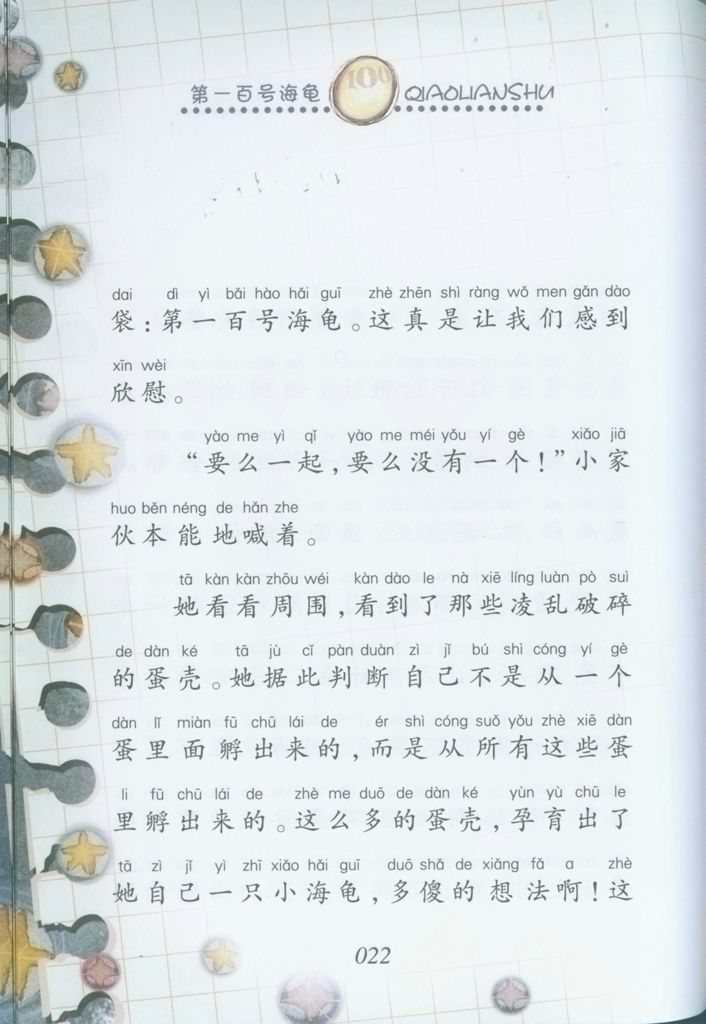 第一百号海龟 100 QIAOLIANSHU
dai dì yì bǎi hào hǎi guī zhè zhēn shì ràng wǒ men gǎn dào
袋：第一百号海龟。这真是让我们感到
xīn wèi
欣慰。
yào me yì qǐ yào me méi yǒu yí gè xiǎo jiā
“要么一起，要么没有一个！”小家
huo běn néng de hǎn zhe
伙本能地喊着。
tā kàn kàn zhōu wéi kàn dào le nà xiē líng luàn pò suì
她看看周围，看到了那些凌乱破碎
de dàn ké tā jù cǐ pàn duàn zì jǐ bú shì cóng yí gè
的蛋壳。她据此判断自己不是从一个
dàn lǐ miàn fū chū lái de ér shì cóng suǒ yǒu zhè xiē dàn
蛋里面孵出来的，而是从所有这些蛋
li fū chū lái de zhè me duō de dàn ké yùn yù chū le
里孵出来的。这么多的蛋壳，孕育出了
tā zì jǐ yì zhī xiǎo hǎi guī duō shǎ de xiǎng fǎ a zhè
她自己一只小海龟，多傻的想法啊！这
022